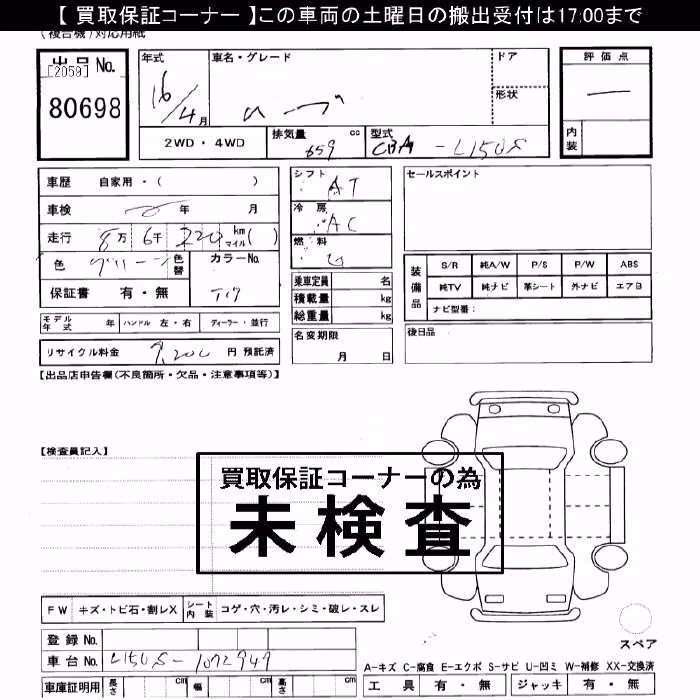 【 買取保証コーナー 】この車両の土曜日の搬出受付は17:00まで
(複合機)対応用紙
出品 No.
[2059]
80698
年式
16/4月
車名・グレード
ムーヴ
ドア
形状
2WD・4WD
排気量 659 cc
型式 CBA-L150S
評価点
一
内装
車歴 自家用・( )
車検 年 月
走行 8万 6千 220 km マイル( )
色 グリーン 色替
カラーNo.
保証書 有・無
モデル年式 年 ハンドル 左・右 ディーラー・並行
リサイクル料金 9,200 円 預託済
シフト AT
冷房 AC
燃料 G
乗車定員 名
積載量 kg
総重量 kg
名変期限 月 日
セールスポイント
装備品
S/R 純A/W P/S P/W ABS
純TV 純ナビ 革シート 外ナビ エアB
ナビ型番:
後日品
【出品店申告欄(不良箇所・欠品・注意事項等)】
【検査員記入】
買取保証コーナーの為
未検査
FW キズ・トビ石・割レX シート内装 コゲ・穴・汚レ・シミ・破レ・スレ
登録 No.
車台 No. L150S-1072949
車庫証明用 長さ cm 幅 cm 高さ cm
スペア
A-キズ C-腐食 E-エクボ S-サビ U-凹ミ W-補修 XX-交換済
工具 有・無 ジャッキ 有・無